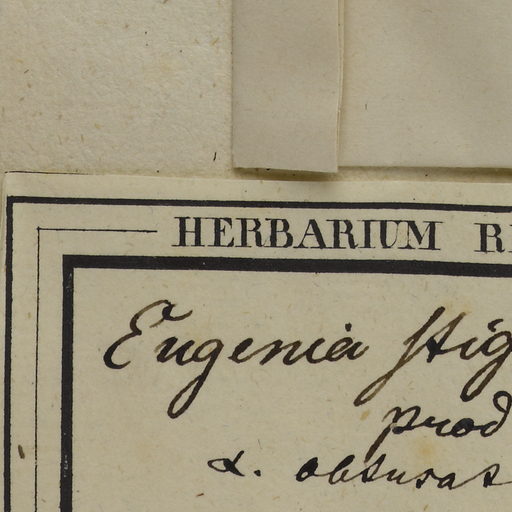 HERBARIUM R
Eugenia stig
prod
α. obtusat